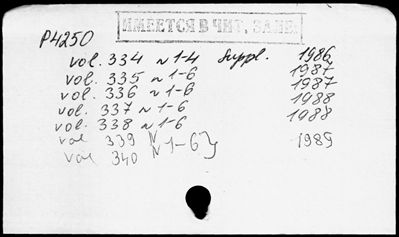 ИМЕЕТСЯ В ЧИТ. ЗАЛЕ
P4250
vol. 334 N 1-4 Suppl. 1986
vol. 335 N 1-6 1987
vol. 336 N 1-6 1987
vol. 337 N 1-6 1988
vol. 338 N 1-6 1988
vol 339 N 1-6 } 1989
vol 340